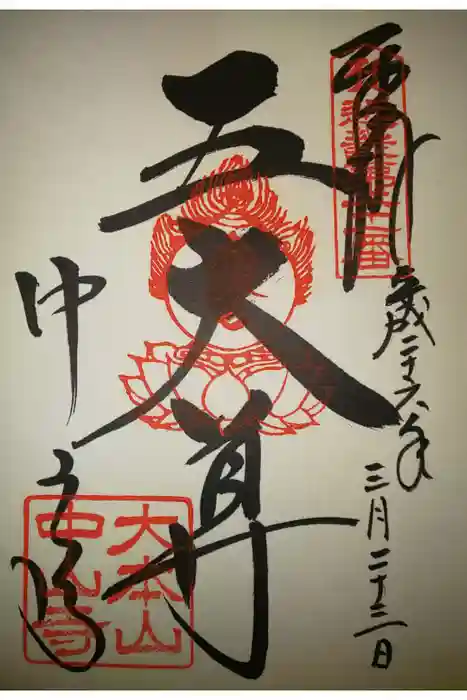 奉拝
平成二十六年
三月二十三日
五大尊
中山寺
大本山
中山寺